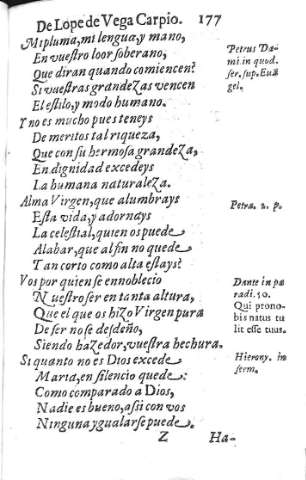 De Lope de Vega Carpio. 177
Mi pluma, mi lengua, y mano,
En vuestro loor soberano,
Que diran quando comiencen?
Si vuestras grandezas vencen
El estilo, y modo humano.
Y no es mucho pues teneys
De meritos tal riqueza,
Que con su hermosa grandeza,
En dignidad excedeys
La humana naturaleza.
Alma Virgen, que alumbrays
Esta vida, y adornays
La celestial, quien os puede
Alabar, que al fin no quede
Tan corto como alta estays?
Vos por quien se ennoblecio
Nuestro ser en tanta altura,
Que el que os hizo Virgen pura
De ser no se desdeño,
Siendo hazedor, vuestra hechura.
Si quanto no es Dios excede
Maria, en silencio quede:
Como comparado a Dios,
Nadie es bueno, assi con vos
Ninguna ygualar se puede.
Z Ha-
Petrus Da-
mi. in quod.
ser. sup. Euā
gel.
Petra. 2. p.
Dante in pa
radi. 10.
Qui prono-
bis natus tu
lit esse tuus.
Hierony. in
serm.